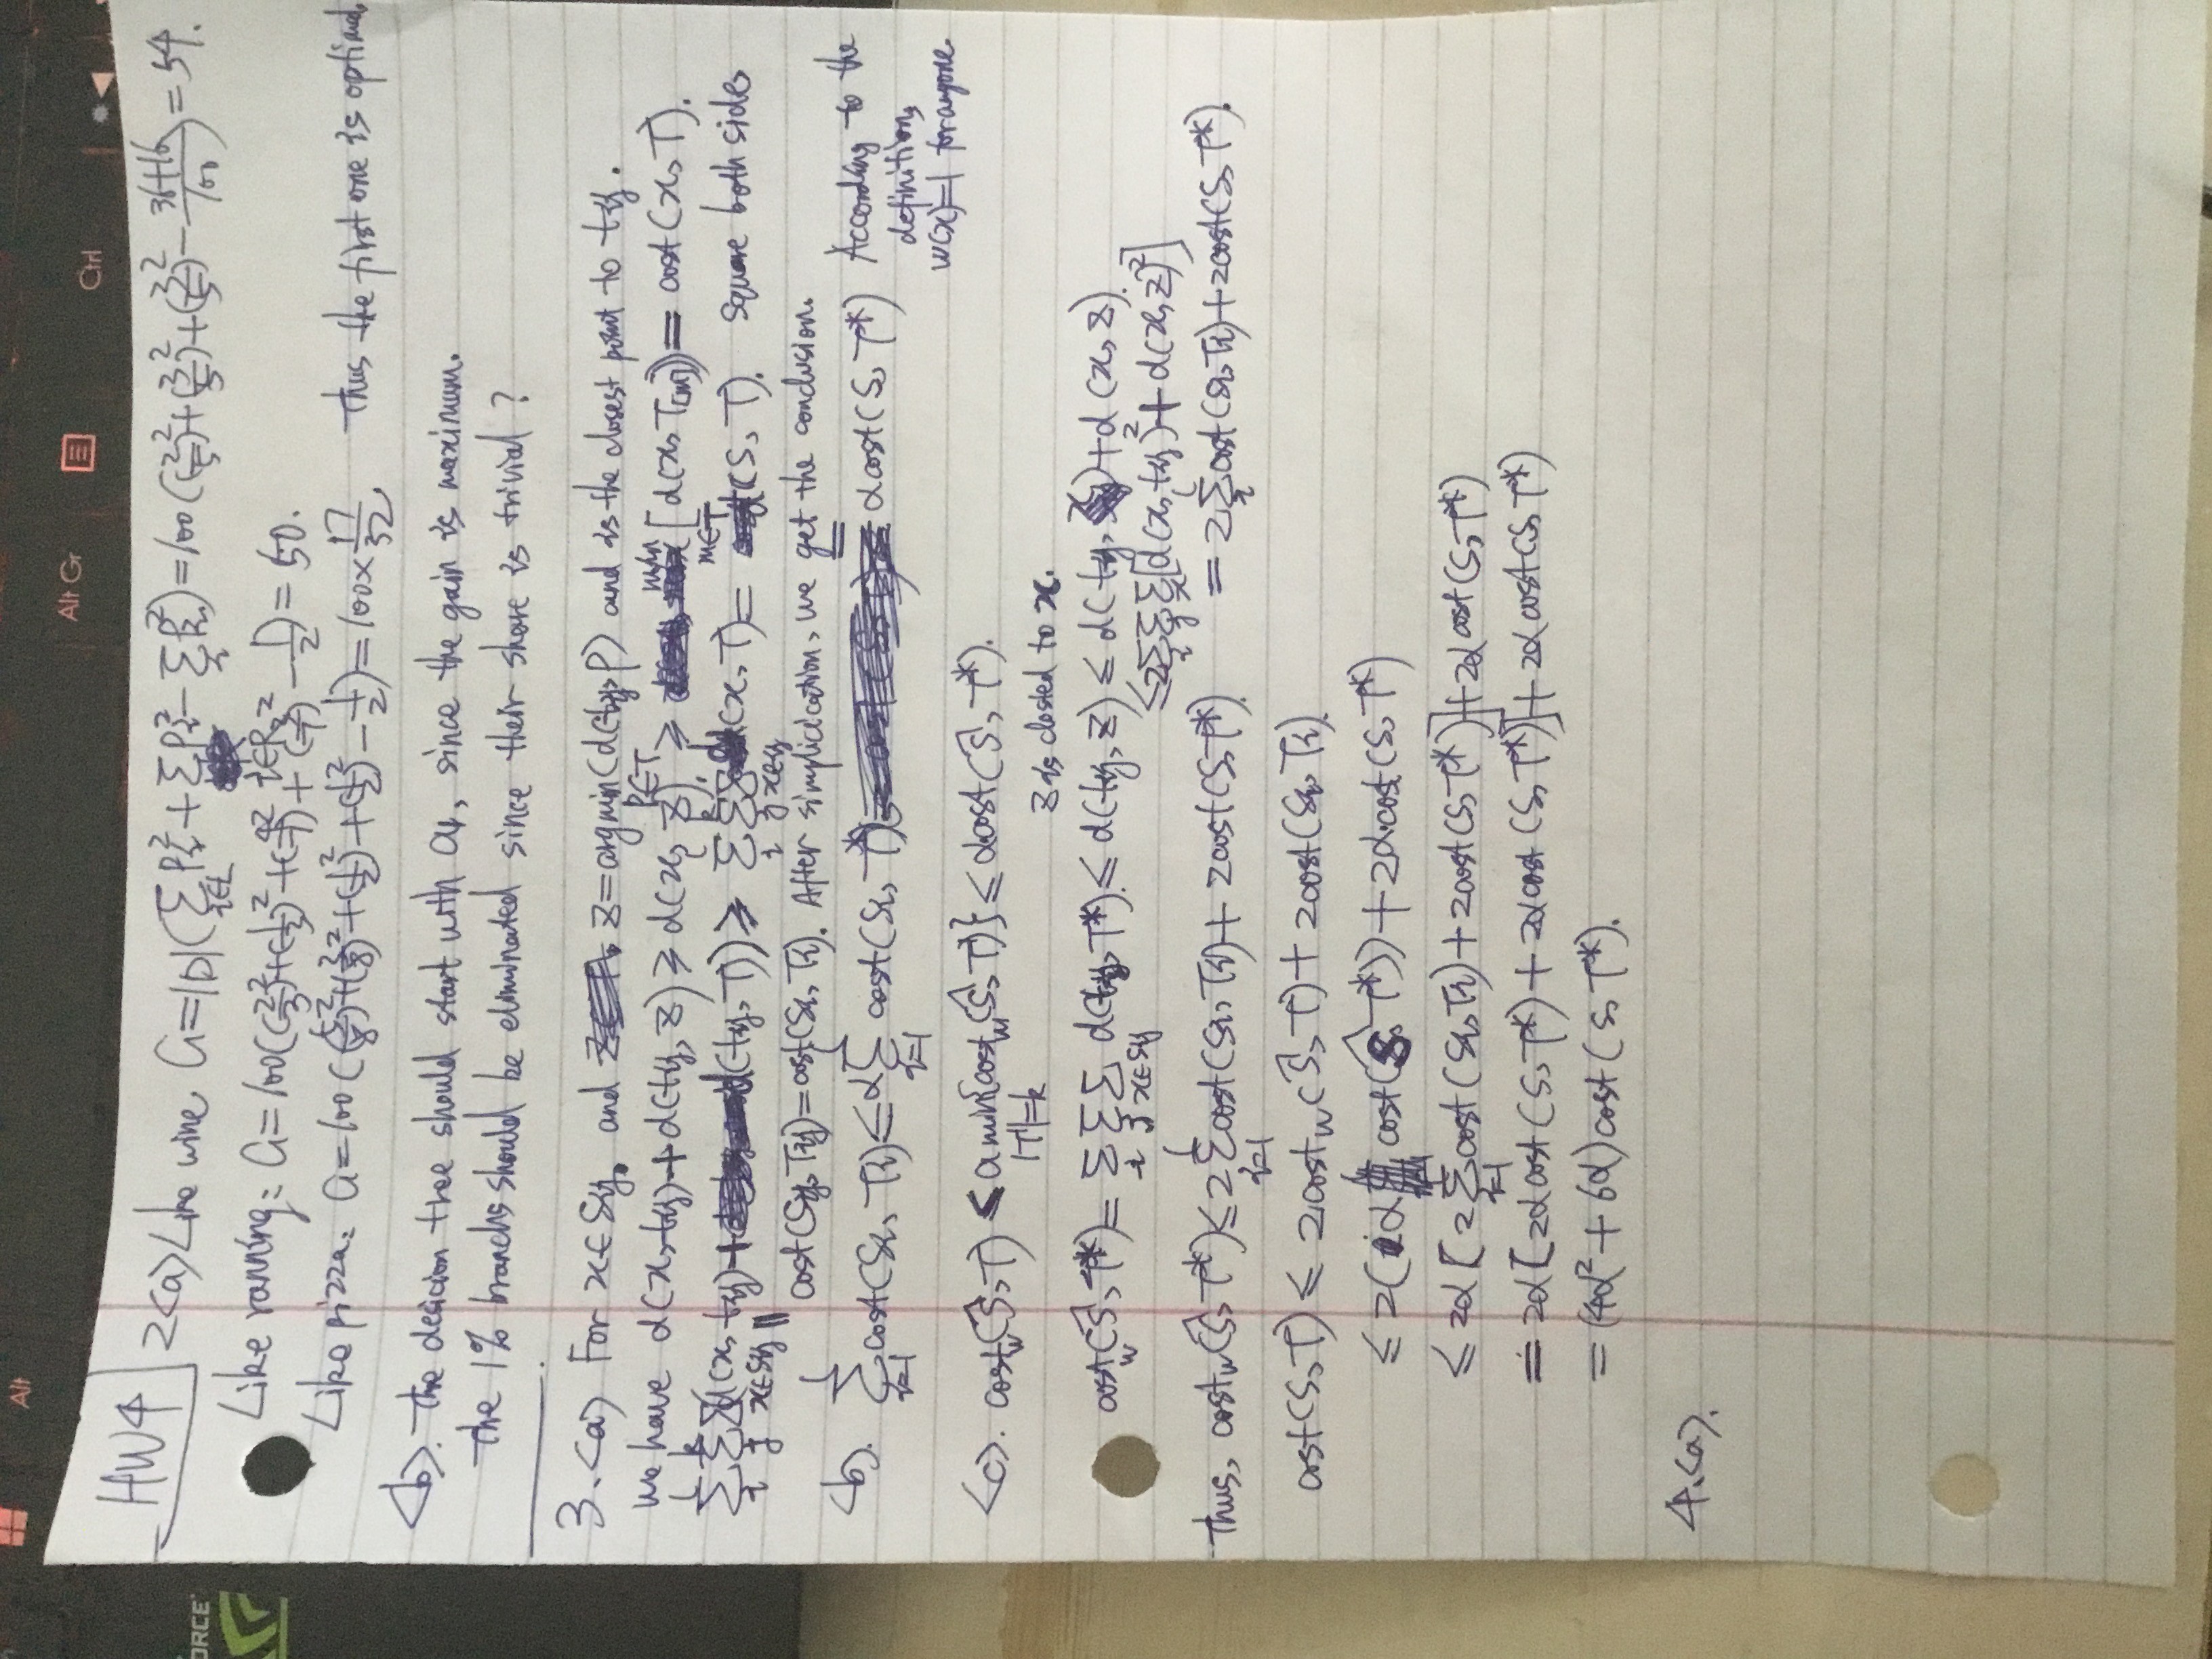 Alt
Alt Gr
Ctrl
ORCE
HW4
2<a> Like wine, G=|D|(∑_{i∈L} P_i^2 + ∑_{i∈R} P_i^2 - ∑_i P_i^2)=100((2/5)^2+(3/5)^2+(3/5)^2-(36+16)/100)=54.
Like ranning: G=100((2/3)^2+(1/3)^2+(4/7)^2+(3/7)^2-1/2)=50.
Like pizza: G=100((5/8)^2+(3/8)^2+(1/2)^2+(1/2)^2-1/2)=100×17/32, Thus the first one is optimal.
<b>. The desicion tree should start with a1, since the gain is maximum.
The 1% branchs should be eliminated since their share is trivial ?
3.<a> For x∈Sij, and z=argmin_{p∈T}(d(tij,p) and is the closest point to tij.
we have d(x,tij)+d(tij,z)≥d(x,z)≥ min_{m∈T}[d(x,T[m])]= cost(x,T).
∑_i^l ∑_j^k ∑_{x∈Sij}(d(x,tij)+d(tij,T))≥ ∑_i^l ∑_j^k ∑_{x∈ij} d(x,T)= d(S,T). Square both side,
cost(Sij,Tij)=cost(Si,Ti). After simplicication, we get the conclusion.
<b>. ∑_{i=1}^l cost(Si,Ti)≤α∑_{i=1}^l cost(Si,T*) = αcost(S,T*) According to the
definition,
w(x)=1 for anyone.
<c>. cost_w(Ŝ,T) ≤ α min_{|T'|=k}{cost_w(Ŝ,T')} ≤ α·cost(Ŝ,T*).
z is closted to x.
cost_w(Ŝ,T*)= ∑_i ∑_j ∑_{x∈Sij} d(tij,T*)≤ d(tij,z) ≤ d(tij,x)+d(x,z).
≤2∑_i∑_j∑_x[d(x,tij)^2+d(x,z)^2]
Thus, cost_w(Ŝ,T*)≤2∑_{i=1}^l cost(Si,Ti)+2cost(S,T*). = 2∑_i^l cost(Si,Ti)+2cost(S,T*).
cost(S,T) ≤ 2cost_w(Ŝ,T)+2cost(Si,Ti).
≤ 2(α cost(Ŝ,T*))+2α·cost(S,T*)
≤ 2α[2∑_{i=1}^l cost(Si,Ti)+2cost(S,T*)]+2αcost(S,T*)
= 2α[2αcost(S,T*)+2αcost(S,T*)]+2αcost(S,T*)
= (4α²+6α)cost(S,T*).
4.<a>.